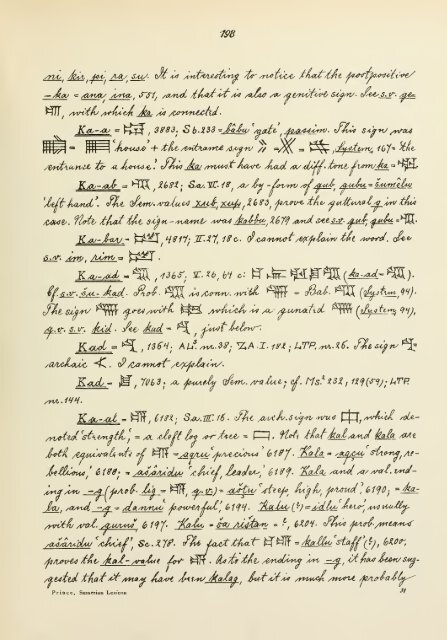 198
ni, kir, pi, ra, su. It is interesting to notice that the postpositive
-ka = ana, ina, 551, and that it is also a genitive sign. See s.v. ge
, with which ka is connected.
Ka-a = , 3883, Sb. 233 = bâbu 'gate', passim. This sign was
= 'house' + the entrance sign = , System, 167 = 'the
entrance to a house.' This ka must have had a diff. tone from ka =
Ka-ab = , 2682; Sa. VI. 18, a by-form of gub, gubu = šumêlu
'left hand'. The Sem. values xub, xup, 2683, prove the guttural g in this
case. Note that the sign-name was kabbu, 2679 and see s.v. gub, gubu = .
Ka-bar = , 4817; II. 27, 18c. I cannot explain the word. See
s.v. im, rim = .
Ka-ad = , 1365; V. 26, 61 c: (ka-ad = ).
Cf. s.v. šu-kad. Prob. is conn. with = Bab. (System, 94).
The sign goes with which is a gunat'd (System, 94),
q.v. s.v. kid. See kad = , just below.
Kad = , 1364; AL³. nr. 38; ZA. I. 182; LTP. nr. 26. The sign =
archaic . I cannot explain.
Kad = , 7063; a purely Sem. value; cf. Ms.² 232, 129(54); LTP.
nr. 144.
Ka-al = , 6182; Sa. III. 16. The arch. sign was , which de-
noted 'strength', = a cleft log or tree = . Note that kal and kala are
both equivalents of = aqru 'precious' 6187. Kala = 'strong, re-
bellious,' 6188; = ašâridu 'chief, leader,' 6189. Kala and a val. end-
ing in -g (prob. lig = , q.v.) = aštu 'steep, high, proud', 6190; = ka-
la, and -g = dannu 'powerful,' 6194. Kalu (?) = idlu 'hero', usually
with val. guruš, 6197. Kalu = ša rištan = ?, 6204. This prob. means
ašâridu 'chief', Sc. 278. The fact that = kallu 'staff' (?), 6200,
proves the kal-value for . As to the ending in -g, it has been sug-
gested that it may have been kalag, but it is much more probably
Prince, Sumerian Lexicon 31